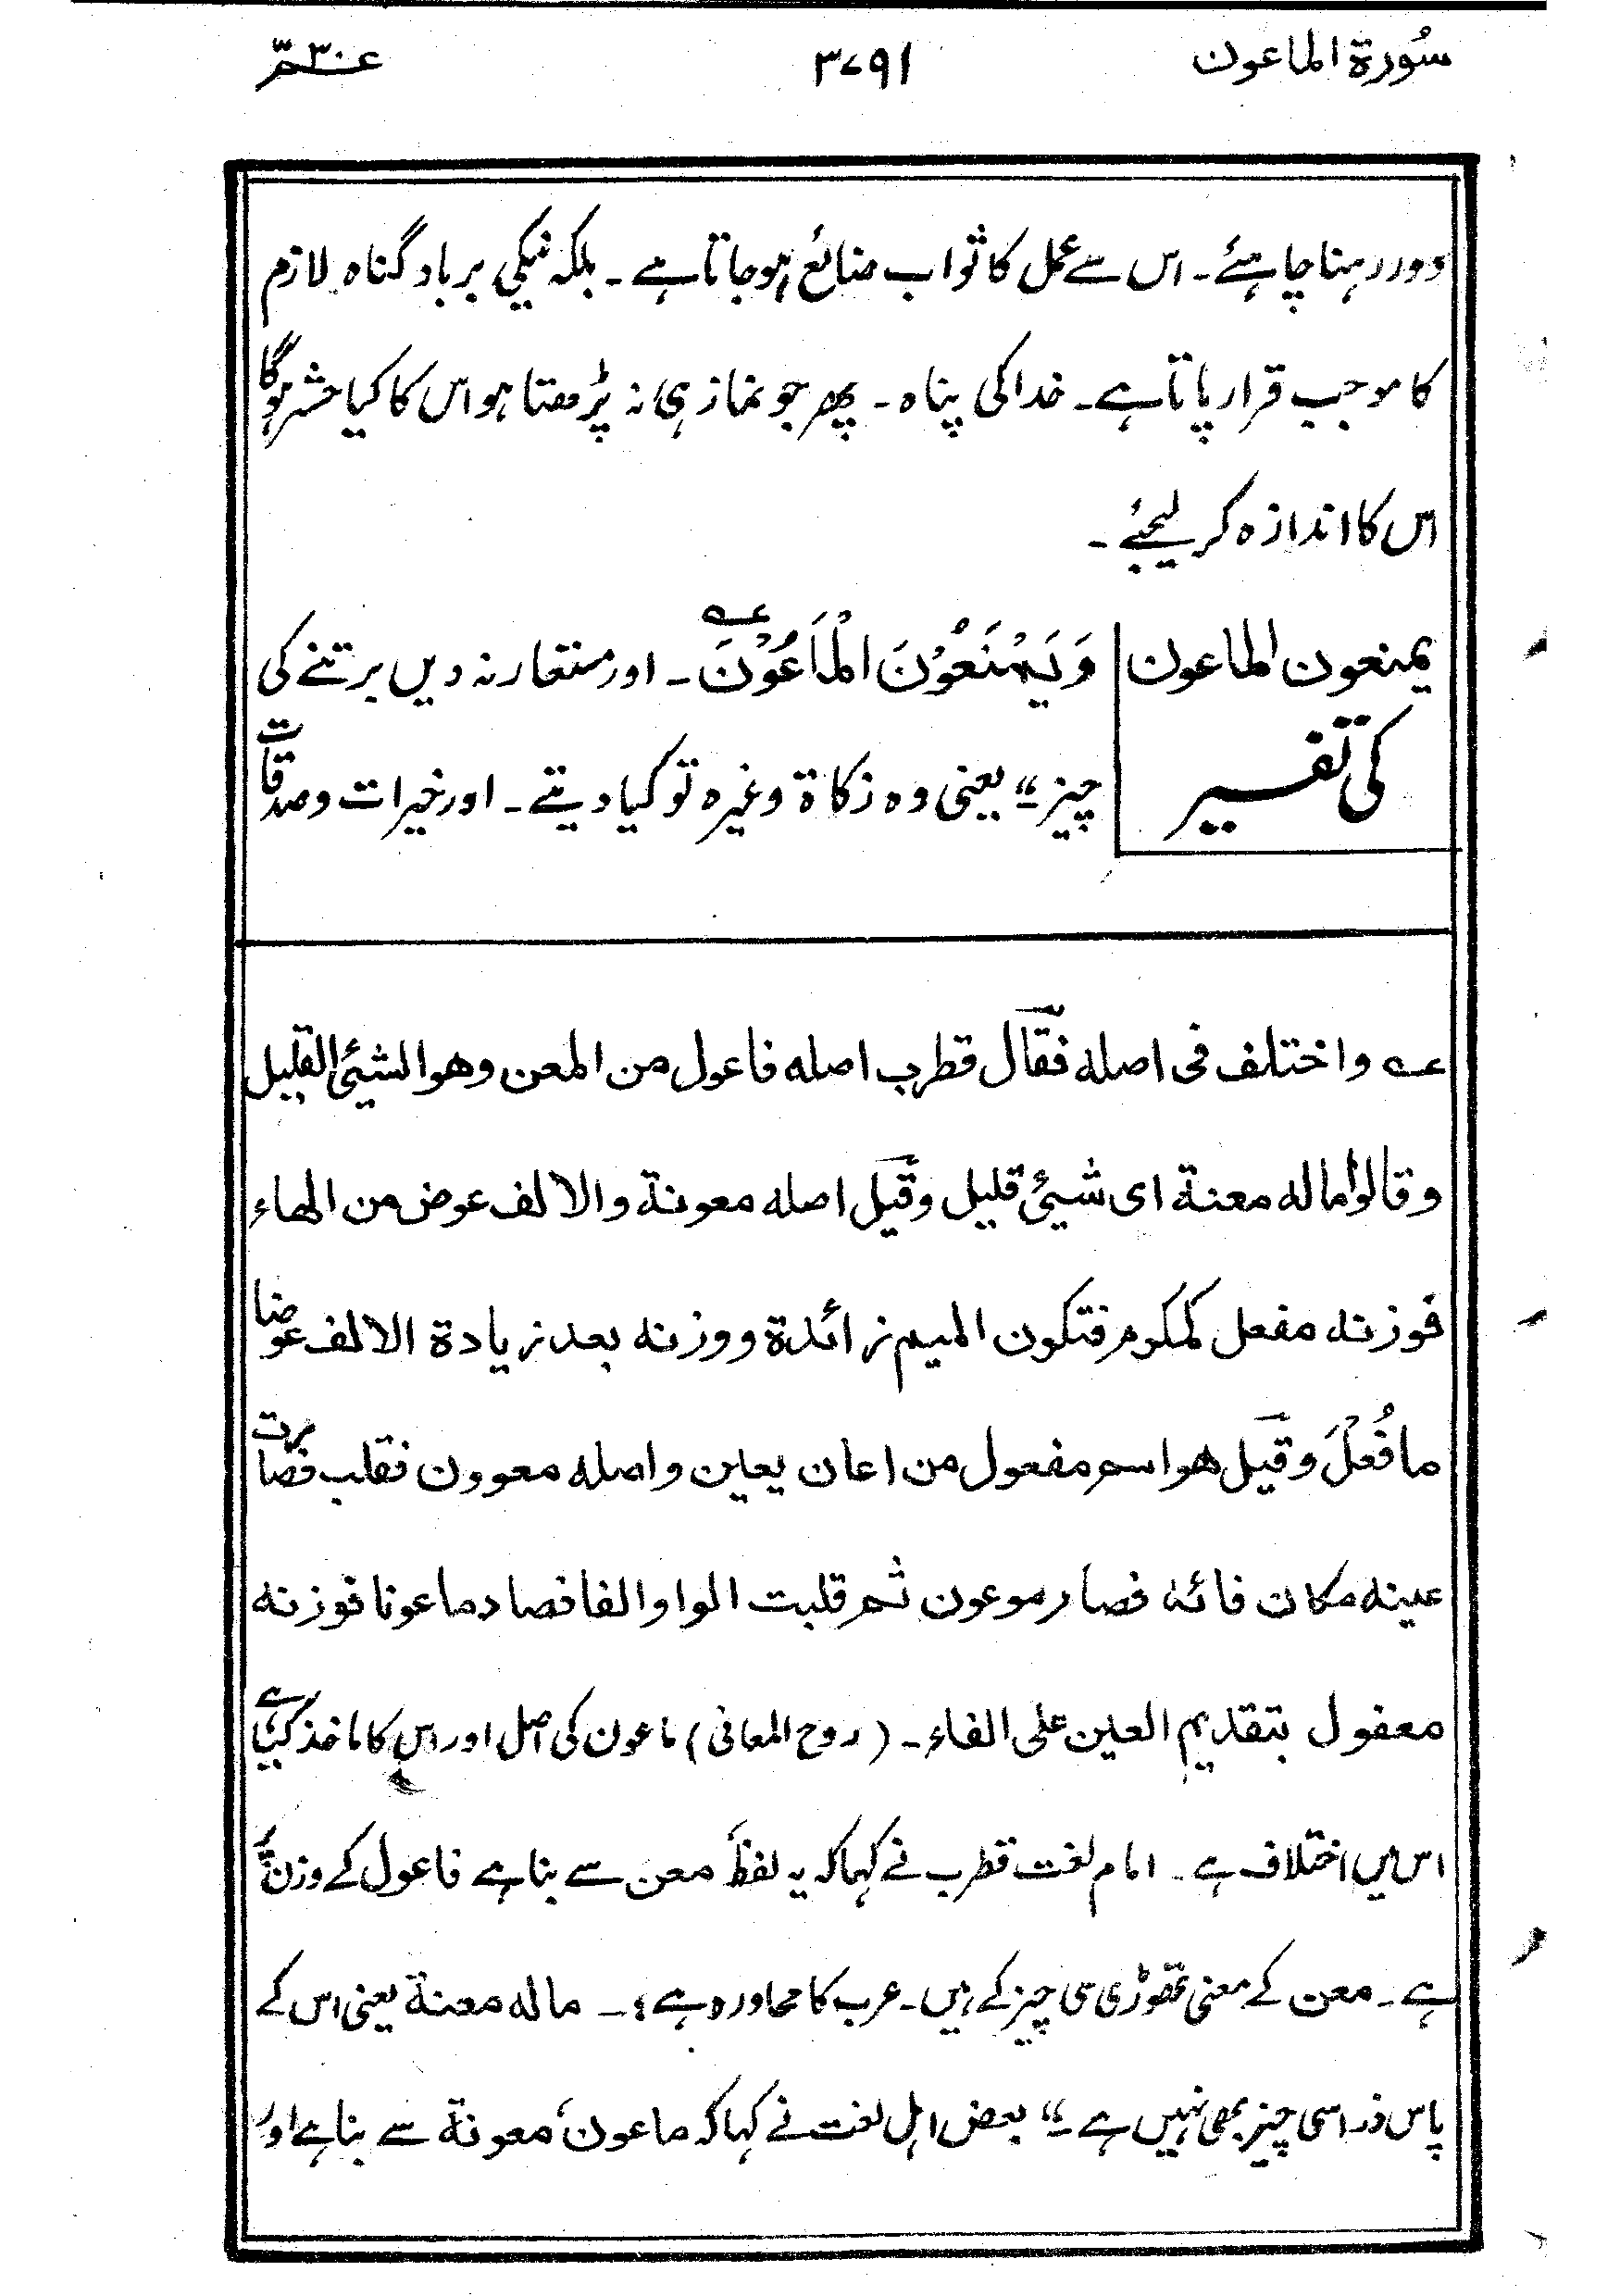 سُورة الماعون ۳۷۹۱ عـم ۳۰
دور رہنا چاہئے۔ اس سے عمل کا ثواب ضائع ہوجاتا ہے۔ بلکہ نیکی برباد گناہ لازم
کا موجب قرار پاتا ہے۔ خدا کی پناہ۔ پھر جو نماز ہی نہ پڑھتا ہو اس کا کیا حشر ہوگا
اس کا اندازہ کر لیجئے۔
یمنعون الماعون
کی تفسیر
وَیَمْنَعُوْنَ الْمَاعُوْنَ عہ۔ اور مستعار نہ دیں برتنے کی
چیز ‘‘ یعنی وہ زکاۃ وغیرہ تو کیا دیتے۔ اور خیرات و صدقات
عہ واختلف فی اصلہ فقال قطرب اصلہ فاعول من المعن وھو الشیئ القلیل
وقالوا مالہ معنۃ ای شیئ قلیل وقیل اصلہ معونۃ والالف عوض من الھاء
فوزنہ مفعل کمکوم فتکون المیم زائدۃ ووزنہ بعد زیادۃ الالف عوضا
مافُعْلَ وقیل ھو اسم مفعول من اعان یعین واصلہ معوون فقلب فصارت
عینہ مکان فائہ فصار موعون ثم قلبت الواو الفا فصار ماعونا فوزنہ
معفول بتقدیم العین علی الفاء۔ (روح المعانی) ماعون کی اصل اور اس کا ماخذ کیا ہے
اس میں اختلاف ہے۔ امام لغت قطرب نے کہا کہ یہ لفظ معن سے بنا ہے فاعول کے وزن پر
ہے۔ معن کے معنی تھوڑی سی چیز کے ہیں۔ عرب کا محاورہ ہے؛۔ مالہ معنۃ یعنی اس کے
پاس ذرا سی چیز بھی نہیں ہے۔‘‘ بعض اہل لغت نے کہا کہ ماعون، معونۃ سے بنا ہے اور